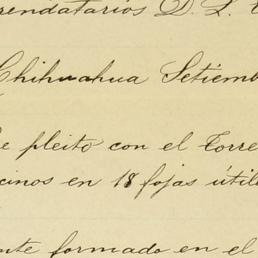 rendatarios D. L.
Chihuahua Setiemb
e pleito con el Torre
cinos en 18 fojas útile
nte formado en el